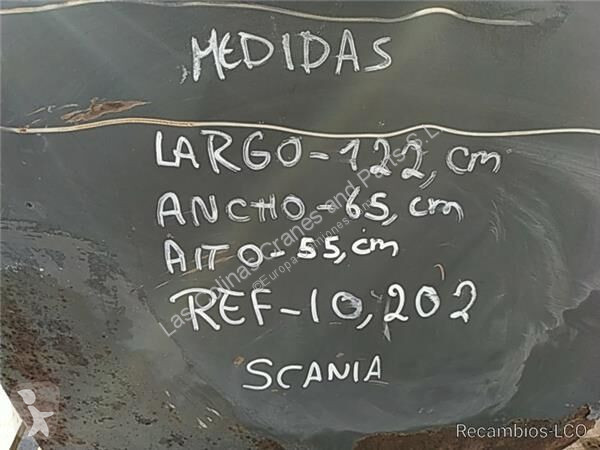 MEDIDAS
LARGO-122, cm
ANCHO-65, cm
AITO-55, cm
REF-10,202
SCANIA
Las Colinas Cranes and Parts S.L.
©EuropaCamiones.com
Recambios-LCO